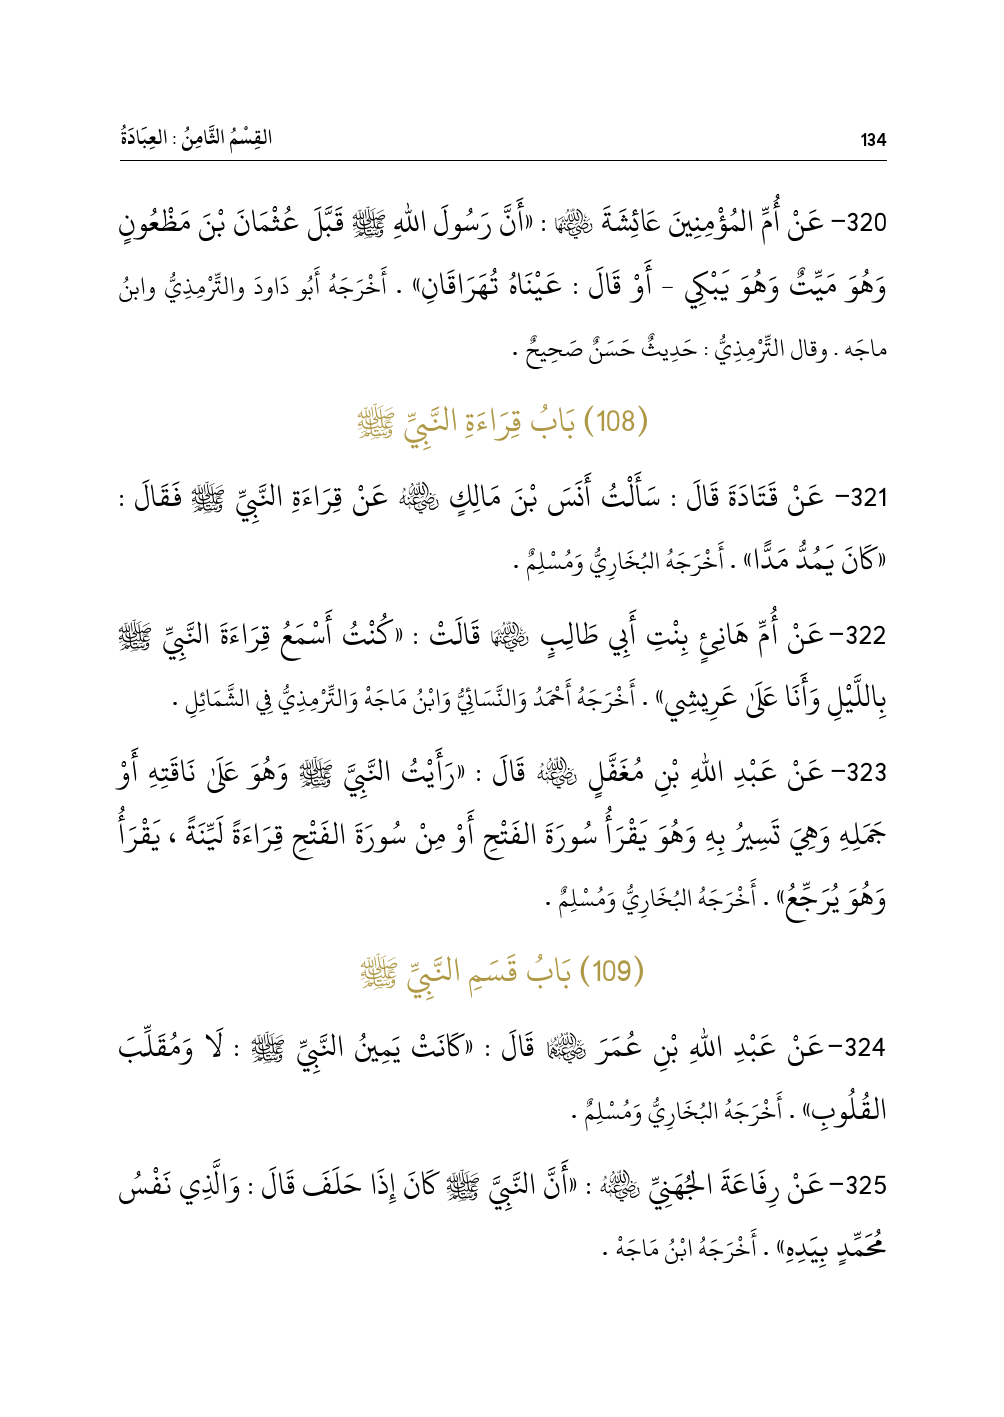 134
القِسْمُ الثَّامِنُ : العِبَادَةُ
320- عَنْ أُمِّ المُؤْمِنِينَ عَائِشَةَ رضي الله عنها : «أَنَّ رَسُولَ اللهِ ﷺ قَبَّلَ عُثْمَانَ بْنَ مَظْعُونٍ
وَهُوَ مَيِّتٌ وَهُوَ يَبْكِي - أَوْ قَالَ : عَيْنَاهُ تُهَرَاقَانِ» . أَخْرَجَهُ أَبُو دَاودَ والتِّرْمِذِيُّ وابنُ
ماجَه . وقال التِّرْمِذِيُّ : حَدِيثٌ حَسَنٌ صَحِيحٌ .
(108) بَابُ قِرَاءَةِ النَّبِيِّ ﷺ
321- عَنْ قَتَادَةَ قَالَ : سَأَلْتُ أَنَسَ بْنَ مَالِكٍ رضي الله عنه عَنْ قِرَاءَةِ النَّبِيِّ ﷺ فَقَالَ :
«كَانَ يَمُدُّ مَدًّا» . أَخْرَجَهُ البُخَارِيُّ وَمُسْلِمٌ .
322- عَنْ أُمِّ هَانِئٍ بِنْتِ أَبِي طَالِبٍ رضي الله عنها قَالَتْ : «كُنْتُ أَسْمَعُ قِرَاءَةَ النَّبِيِّ ﷺ
بِاللَّيْلِ وَأَنَا عَلَىٰ عَرِيشِي» . أَخْرَجَهُ أَحْمَدُ وَالنَّسَائِيُّ وَابْنُ مَاجَهْ وَالتِّرْمِذِيُّ فِي الشَّمَائِلِ .
323- عَنْ عَبْدِ اللهِ بْنِ مُغَفَّلٍ رضي الله عنه قَالَ : «رَأَيْتُ النَّبِيَّ ﷺ وَهُوَ عَلَىٰ نَاقَتِهِ أَوْ
جَمَلِهِ وَهِيَ تَسِيرُ بِهِ وَهُوَ يَقْرَأُ سُورَةَ الفَتْحِ أَوْ مِنْ سُورَةَ الفَتْحِ قِرَاءَةً لَيِّنَةً ، يَقْرَأُ
وَهُوَ يُرَجِّعُ» . أَخْرَجَهُ البُخَارِيُّ وَمُسْلِمٌ .
(109) بَابُ قَسَمِ النَّبِيِّ ﷺ
324- عَنْ عَبْدِ اللهِ بْنِ عُمَرَ رضي الله عنهما قَالَ : «كَانَتْ يَمِينُ النَّبِيِّ ﷺ : لَا وَمُقَلِّبَ
القُلُوبِ» . أَخْرَجَهُ البُخَارِيُّ وَمُسْلِمٌ .
325- عَنْ رِفَاعَةَ الجُهَنِيِّ رضي الله عنه : «أَنَّ النَّبِيَّ ﷺ كَانَ إِذَا حَلَفَ قَالَ : وَالَّذِي نَفْسُ
مُحَمَّدٍ بِيَدِهِ» . أَخْرَجَهُ ابْنُ مَاجَهْ .